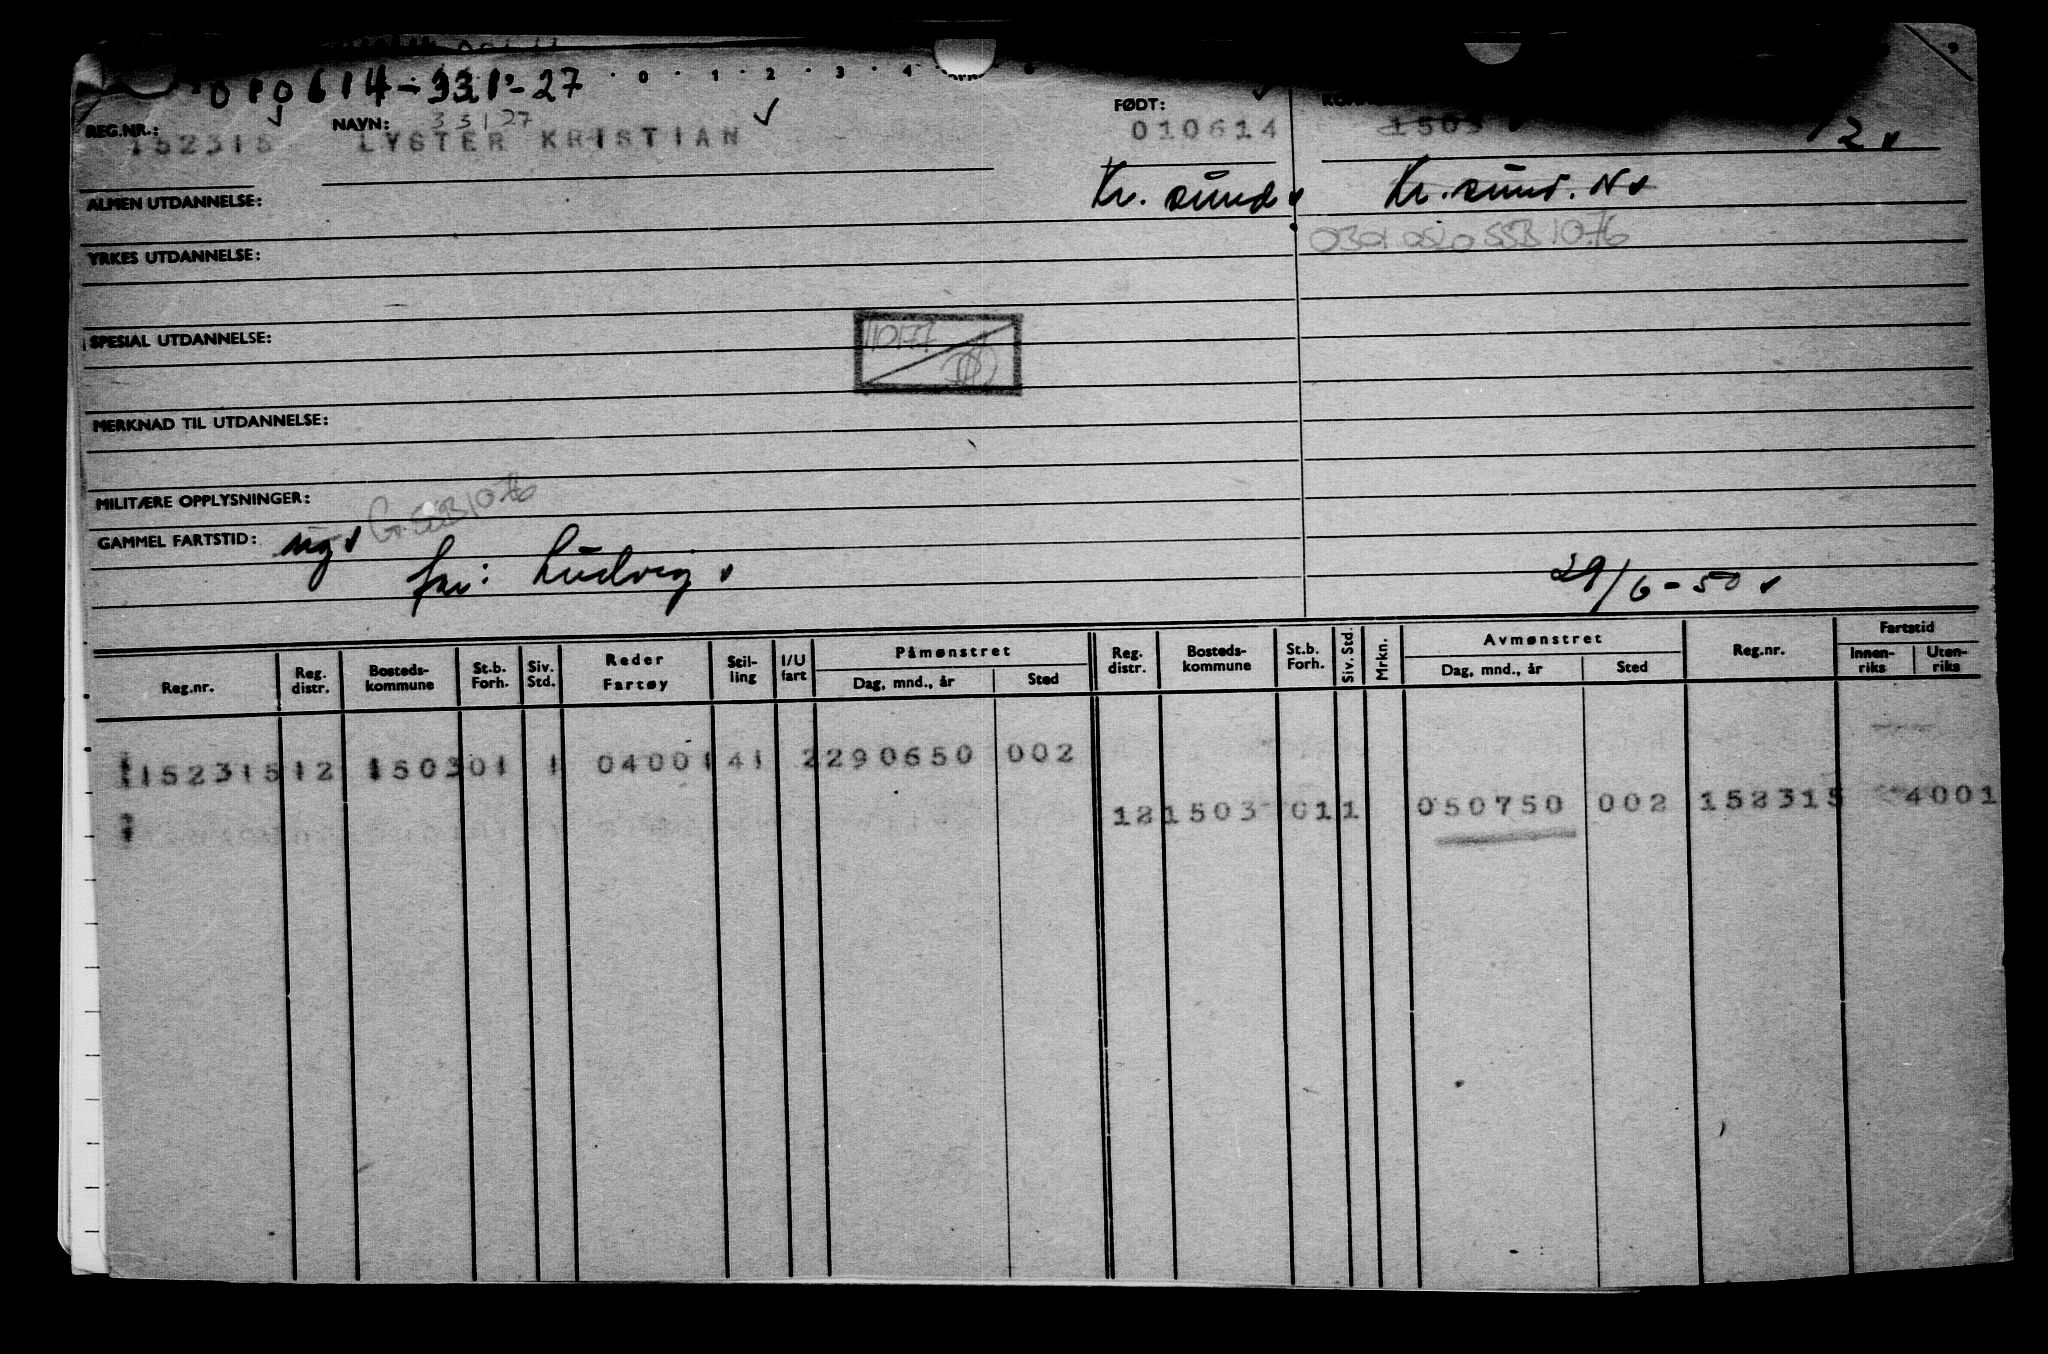 010614-331-27
0 · 1 · 2 · 3 · 4
33127
REG.NR.: NAVN: FØDT:
152315 LYSTER KRISTIAN 010614 1503 12
Kr. sund Kr. sund. N
ALMEN UTDANNELSE:
0301 oslo SSB 1076
YRKES UTDANNELSE:
SPESIAL UTDANNELSE:
MERKNAD TIL UTDANNELSE:
MILITÆRE OPPLYSNINGER:
GAMMEL FARTSTID: ug
far: Ludvig 29/6-50
Reg.nr. Reg. distr. Bosteds-kommune St.b. Forh. Siv. Std. Reder Fartøy Stil-ling I/U fart Påmønstret Dag, mnd., år Sted Reg. distr. Bosteds-kommune St.b. Forh. Siv. Std. Mrkn. Avmønstret Dag, mnd., år Sted Reg.nr. Fartstid Innen-riks Uten-riks
152315 12 1503 01 1 04001 41 2 290650 002
12 1503 01 1 050750 002 152315 4001